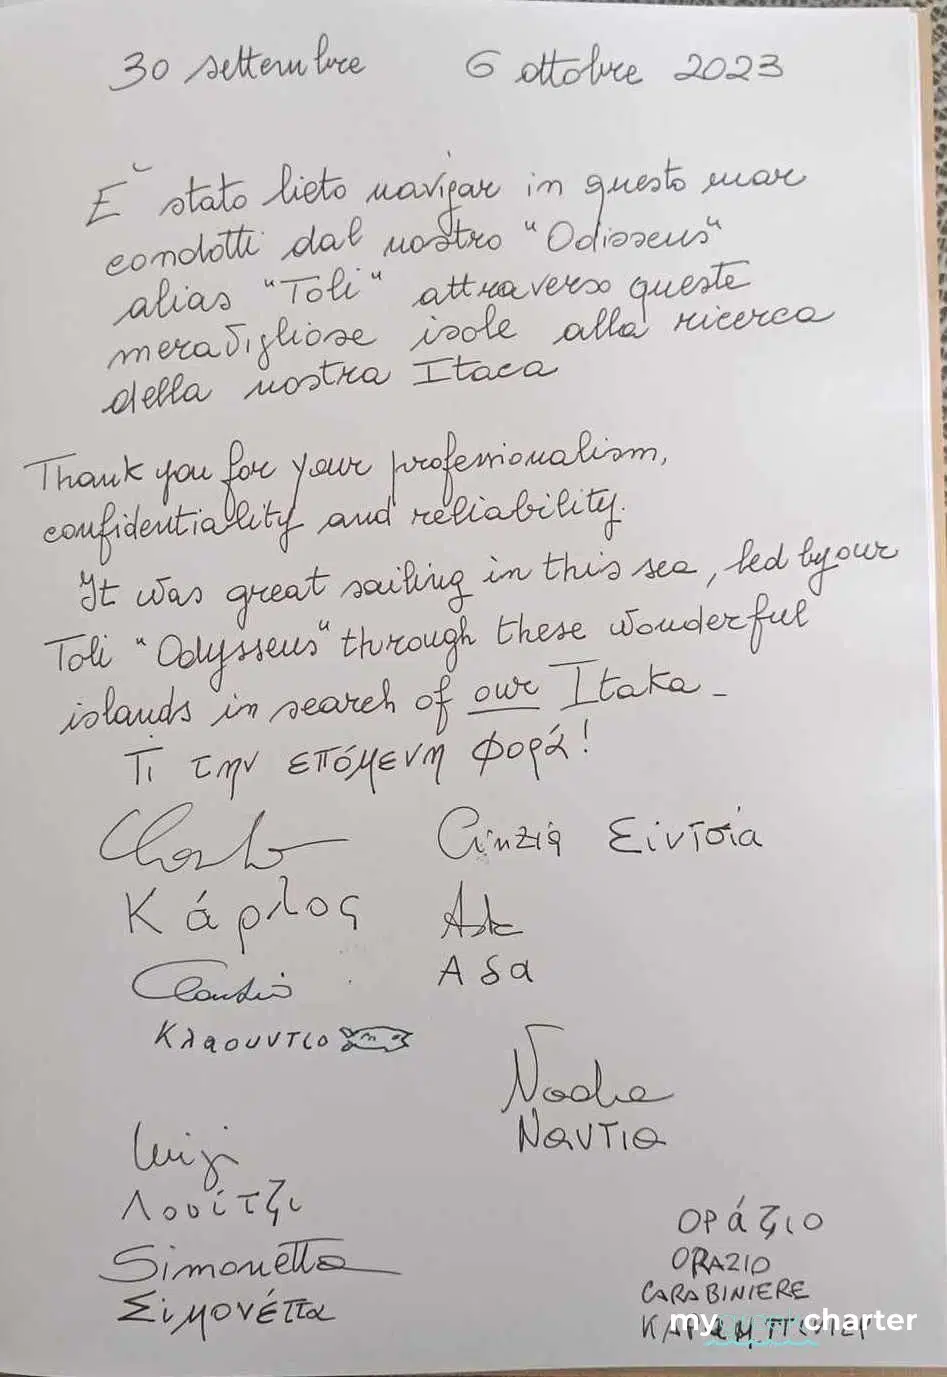 30 settembre 6 ottobre 2023
È stato lieto navigar in questo mar
condotti dal nostro "Odisseus"
alias "Toli" attraverso queste
meravigliose isole alla ricerca
della nostra Itaca
Thank you for your professionalism,
confidentiality and reliability.
It was great sailing in this sea, led by our
Toli "Odysseus" through these wonderful
islands in search of our Itaka -
Τι την επόμενη φορά!
Carlo Cinzia Σίντσια
Κάρλος Ada
Claudio Αδα
Κλαουντιο
Nadia
Ναντια
Luigi
Λουίτζι
Simonetta
Σιμονέττα
οράζιο
ORAZIO
CARABINIERE
mygreekcharter